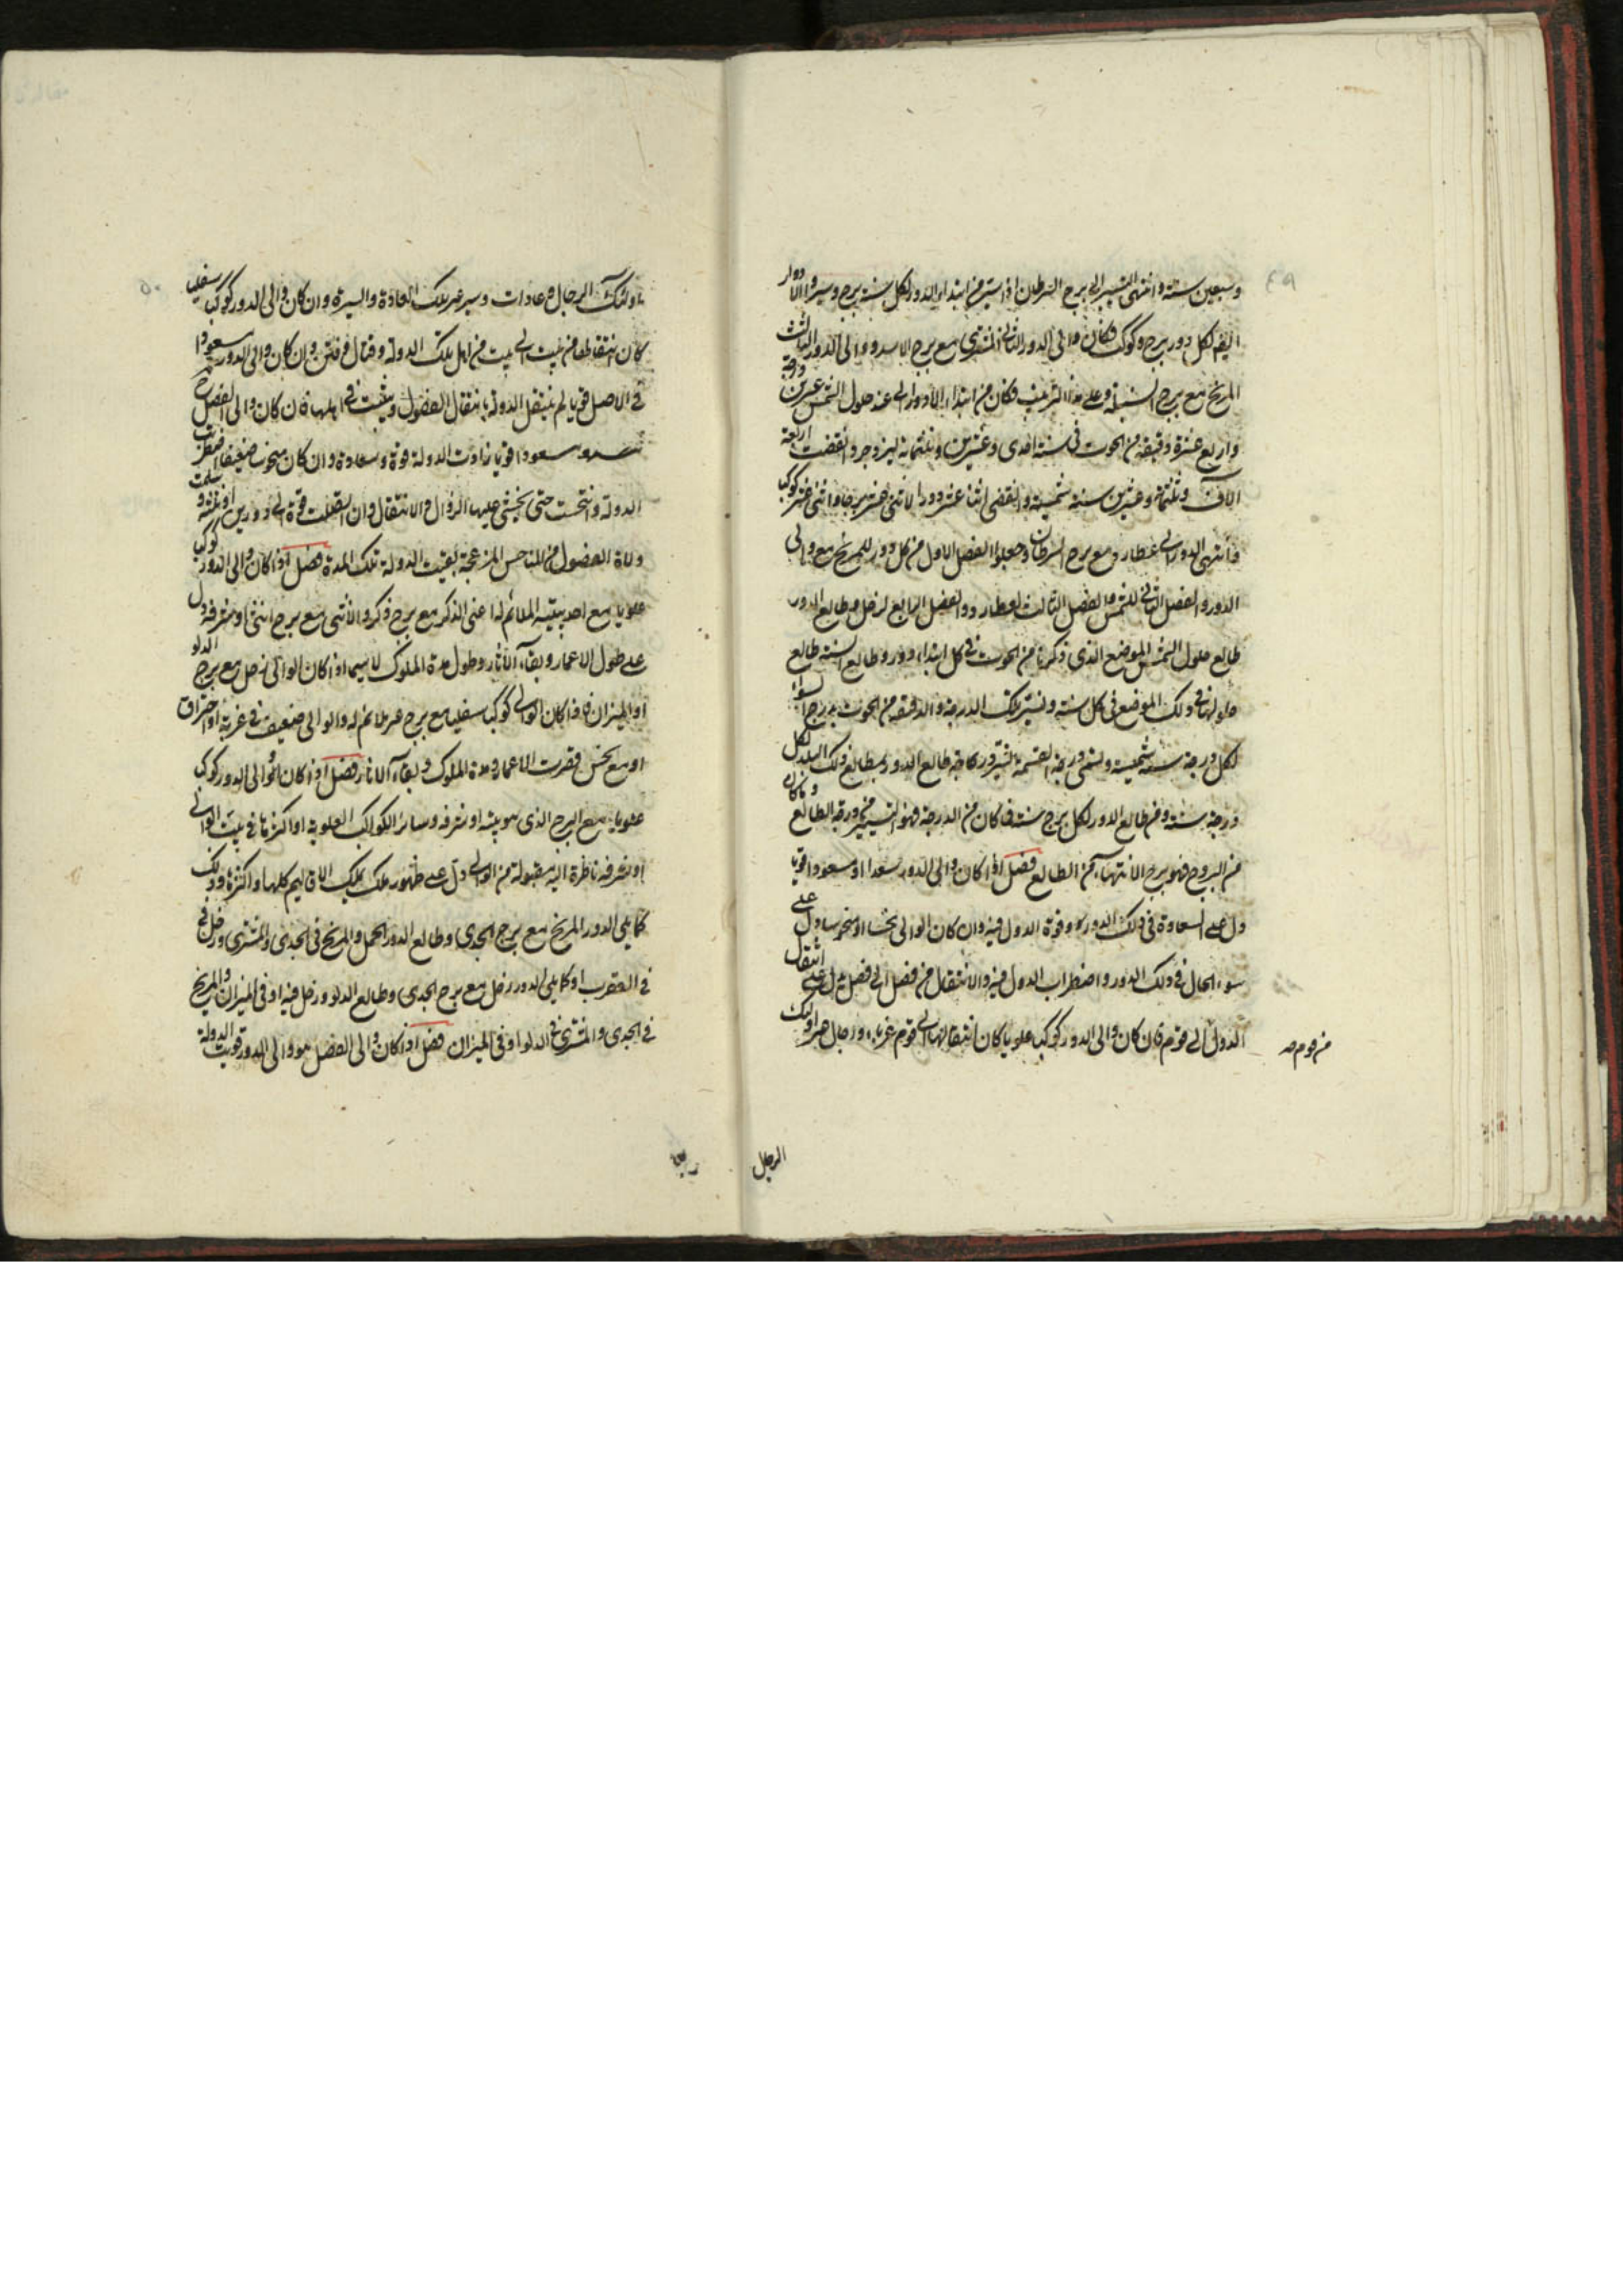 ٤٩
وسبعين سنة وانتهى التسيير الى برج السرطان اذا سير من ابتداء الدور لكل سنة برج وسيروا الادوار
ايضا لكل دور برج وكوكب فكان والى الدور الثانى المشترى مع برج الاسد ووالى الدور الثالث
المريخ مع برج السنبلة وعلى هذا الترتيب فكان من ابتداء الادوار الى عند حلول الشمس عشرين درجة
واربع عشرة دقيقة من الحوت فى سنة احدى وعشرين وثلثمائة ليزدجرد انقضت اربعة
الاف وثلثمائة وعشرين سنة شمسية وانقضى اثنا عشر دورا لاثنى عشر برجا واثنى عشر كوكبا
فانتهى الدور الى عطارد مع برج السرطان وجعلوا الفصل الاول من كل دور للمريخ مع والى
الدور والفصل الثانى للشمس والفصل الثالث لعطارد والفصل الرابع لزحل وطالع الدور
طالع حلول الشمس الموضع الذى ذكرنا من الحوت فى كل ابتداء دور وطالع السنة طالع
حلولها فى ذلك الموضع فى كل سنة وتسير تلك الدرجة والدقيقة من الحوت بدرج السواء
لكل درجة سنة شمسية وتسمى درجة القسمة وتسير درجة طالع الدور بمطالع ذلك البلد لكل
درجة سنة ومن طالع الدور لكل برج سنة فما كان من الدرجة فهو التسيير من درجة الطالع وما كان
من البروج فهو برج الانتهاء من الطالع فصل اذا كان والى الدور سعدا او مسعودا قويا
دل على السعادة فى ذلك الدور وقوة الدول فيه وان كان الوالى نحسا او منحوسا دل على
سوء الحال فى ذلك الدور واضطراب الدول فيه والانتقال من فصل الى فصل يدل على انتقال
الدول الى قوم فان كان والى الدور كوكبا علويا كان انتقالها الى قوم غرباء ورجال غير اولئك
من قوم صح
الرجال
٥٠
اولئك الرجال وعادات وسير غير تلك العادة والسيرة وان كان والى الدور كوكبا سفليا
كان انتقالها من بيت الى بيت من اهل تلك الدولة وقتال وفتن وان كان والى الدور مسعودا
فى الاصل قويا لم تنتقل الدولة بانتقال الفصول وثبتت فى اهلها فان كان والى الفصل
سعدا مسعودا قويا زادت الدولة قوة وسعادة وان كان منحوسا ضعيفا اضطربت
الدولة وانتحست حتى يخشى عليها الزوال والانتقال وان اتصلت قوة الى دورين او ثلثة وسلمت
ولاة الفصول من المناحس المزعجة بقيت الدولة تلك المدة فصل اذا كان والى الدور كوكبا
علويا مع احد بيتيه الملائم له اعنى الذكر مع برج ذكر والانثى مع برج انثى او شرفه دل
على طول الاعمار وبقاء الاثار وطول مدة الملوك لاسيما اذا كان الوالى زحل مع برج الدلو
او الميزان فاذا كان الوالى كوكبا سفليا مع برج غير ملائم له والوالى ضعيف فى غربة او احتراق
او مع نحس قصرت الاعمار ومدة الملوك وبقاء الاثار فصل اذا كان والى الدور كوكبا
علويا مع البرج الذى هو بيته او شرفه وسائر الكواكب العلوية او اكثرها فى بيت الوالى
او شرفه ناظرة اليه مقبولة من الوالى دل على ظهور ملك يملك الاقاليم كلها او اكثرها وذلك
كما يلى الدور المريخ مع برج الجدى وطالع الدور الحمل والمريخ فى الجدى والمشترى وزحل فى
فى العقرب او كما يلى الدور زحل مع برج الجدى وطالع الدلو وزحل فيه او فى الميزان والمريخ
فى الجدى والمشترى فى الدلو او فى الميزان فصل اذا كان والى الفصل هو والى الدور قويت الدولة